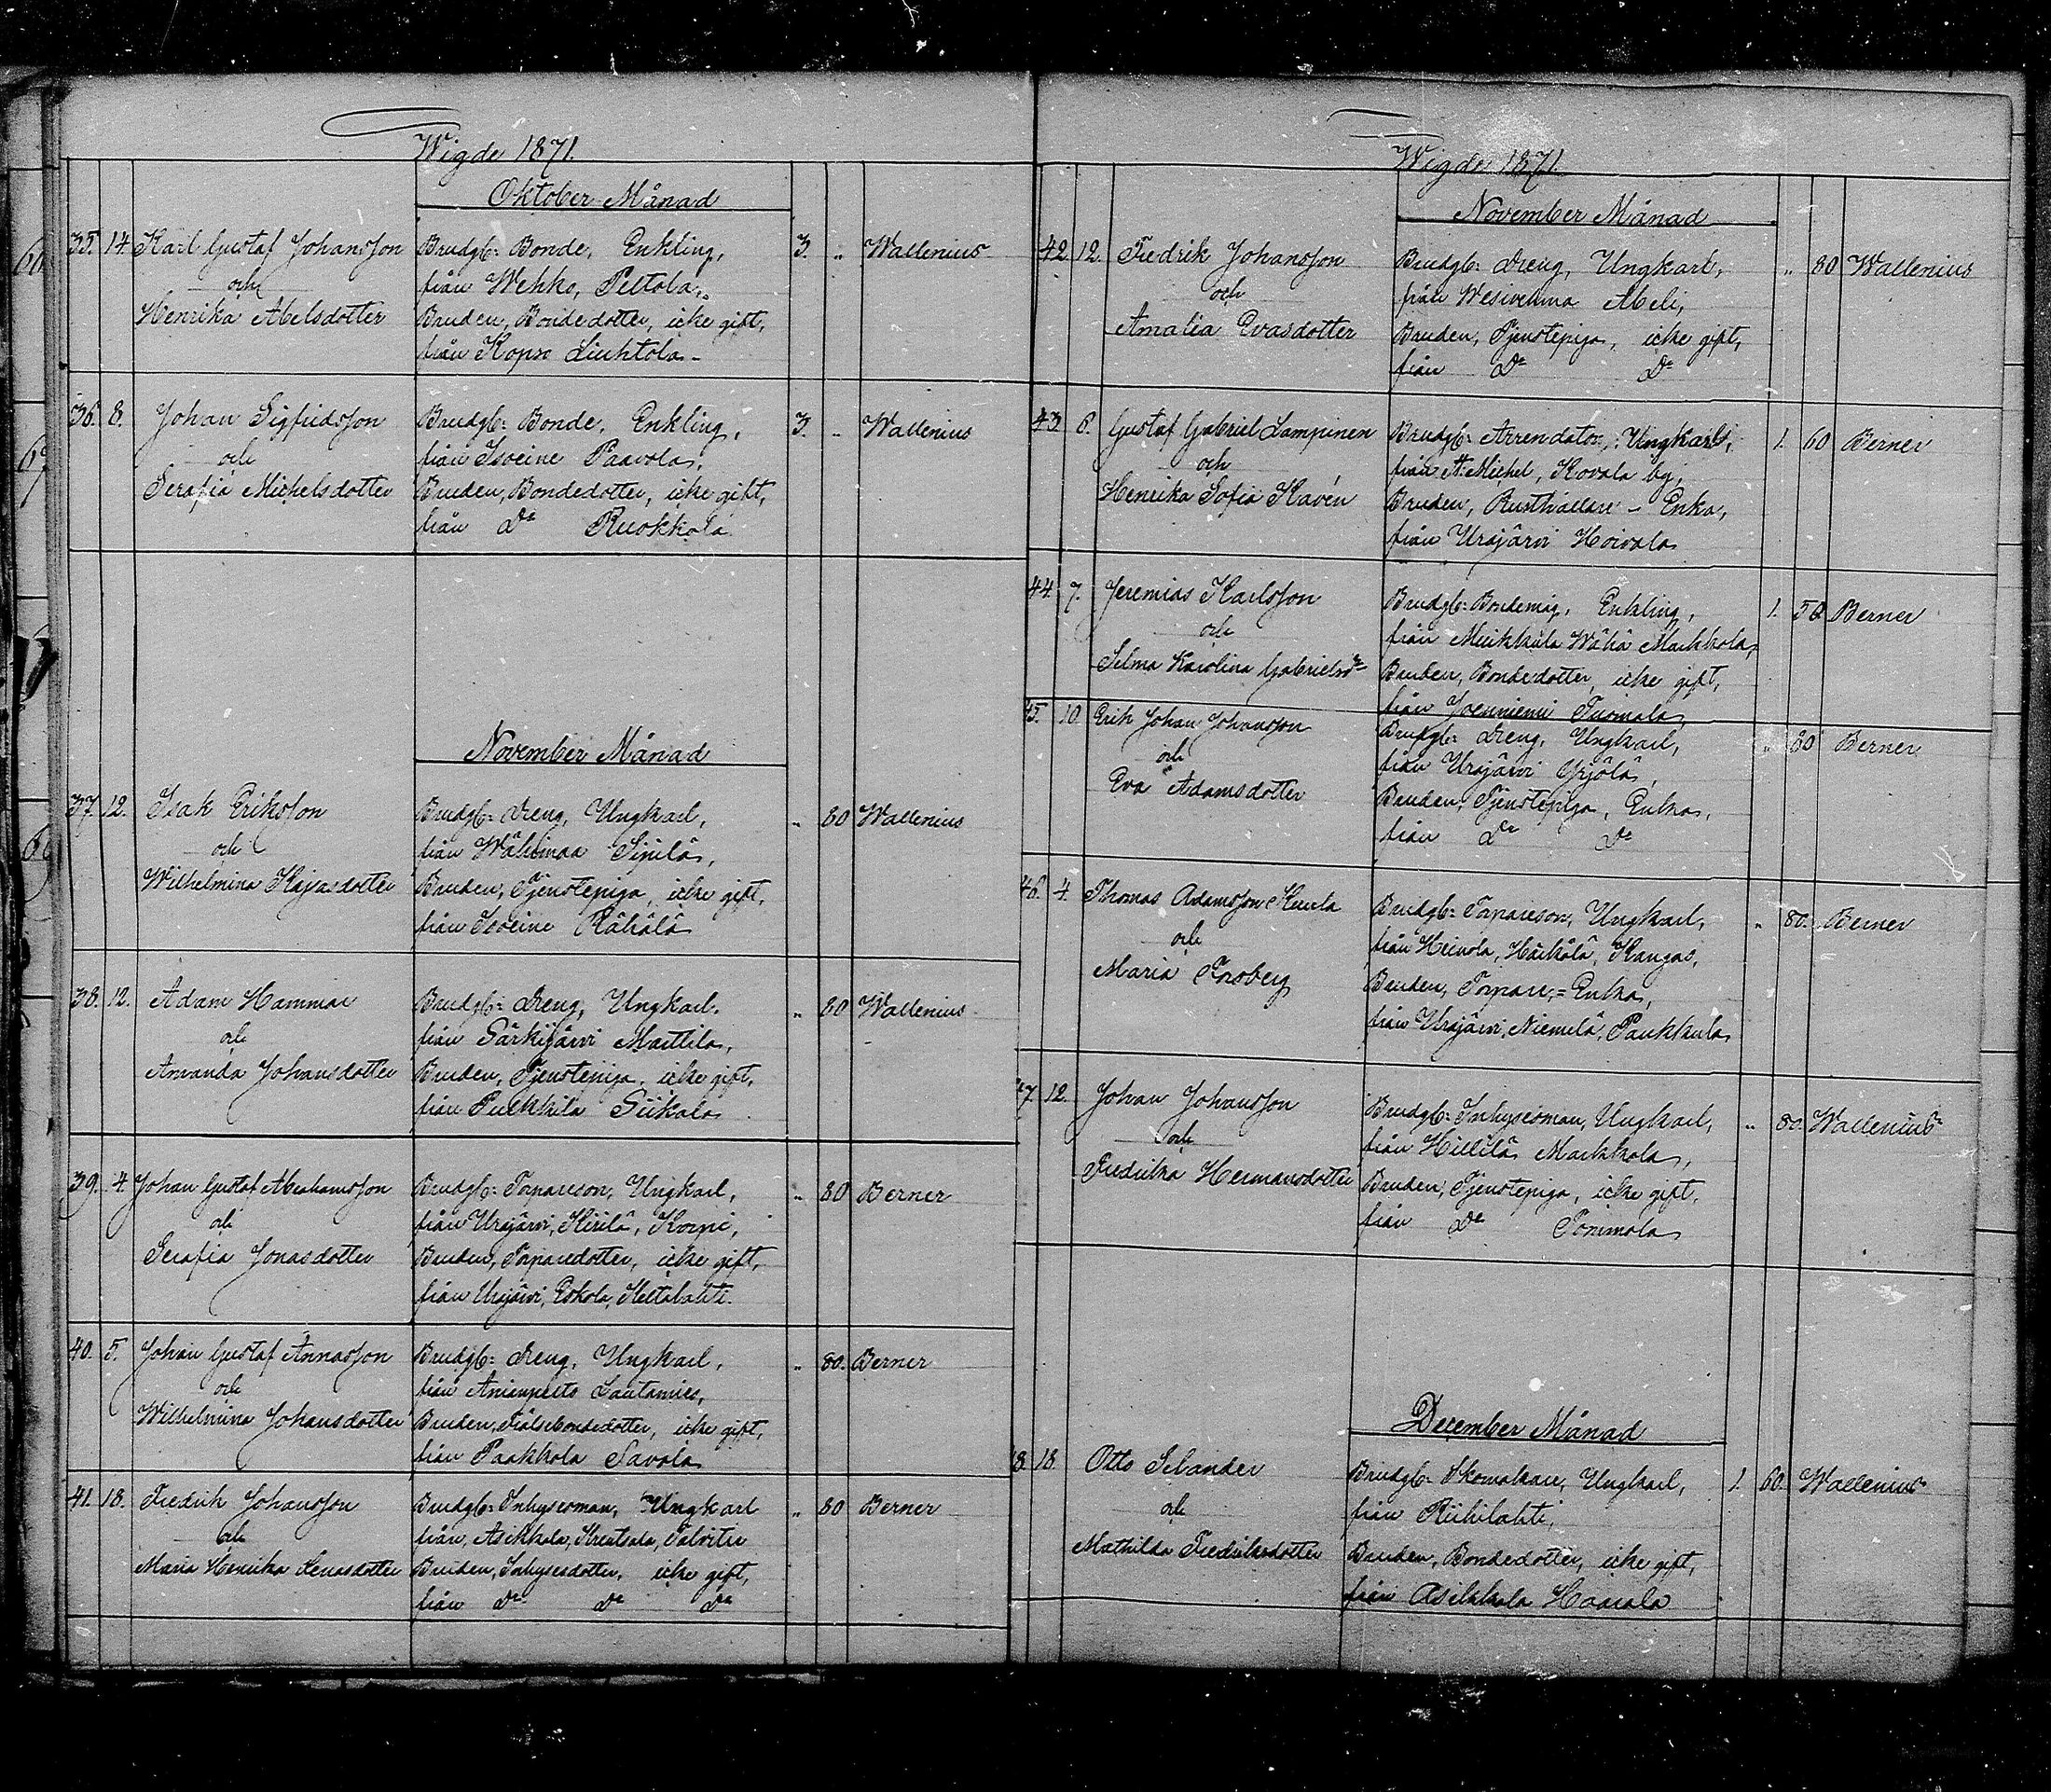 Wigde 1871.
Oktober Månad
35. 14. Karl Gustaf Johansson Brudg: Bonde, Enkling, 3. „ Wallenius
och från Wehko, Peltola,
Henrika Abelsdotter Bruden, Bondedotter, icke gift,
från Kopso Liuhtola
36. 8. Johan Sigfridsson Brudg: Bonde, Enkling, 3. „ Wallenius
och från Isoeine Paavola,
Serafia Michelsdotter Bruden, Bondedotter, icke gift,
från Do Ruokkola
November Månad
37. 12. Isak Eriksson Brudg: Dreng, Ungkarl, „ 80 Wallenius
och från Wähimaa Sipilä,
Wilhelmina Kajsasdotter Bruden, Tjenstepiga, icke gift,
från Isoeine Rähälä
38. 12. Adam Hammar Brudg: Dreng, Ungkarl, „ 80 Wallenius
och från Särkijärvi Marttila,
Amanda Johansdotter Bruden, Tjenstepiga, icke gift,
från Pulkkila Siikala
39. 4. Johan Gustaf Abrahamsson Brudg: Torpareson, Ungkarl, „ 80 Berner
och från Urajärvi, Kirilä, Korpi,
Serafia Jonasdotter Bruden, Torparedotter, icke gift,
från Urajärvi, Eskola,
40. 5. Johan Gustaf Annasson Brudg: Dreng, Ungkarl, „ 80. Berner
och från Anianpelto Lautamies,
Wilhelmina Johansdotter Bruden, icke gift,
från Paakkola Savola
41. 18. Fredrik Johansson Brudg: Inhysesman, Ungkarl „ 80 Berner
och från, Asikkala, Kreutsala, Talvitie
Maria Henrika Lenasdotter Bruden, Inhysesdotter, icke gift,
från Do Do Do
Wigde 1871.
November Månad
42 12. Fredrik Johansson Brudg: Dreng, Ungkarl, „ 80 Wallenius
och från Wesivehma Abeli,
Amalia Evasdotter Bruden, Tjenstepiga, icke gift,
från Do Do
43 6. Gustaf Gabriel Lampinen Brudg: Arrendator, Ungkarl, 1. 60 Berner
och från St: Michel, Kovala by,
Henrika Sofia Kavén Bruden, Rusthållare - Enka,
från Urajärvi Hoivala
44. 7. Jeremias Karlsson Brudg: Bondemåg, Enkling, 1. 50 Berner
och från Muikkula Wähä Markkola,
Selma Karolina Gabrielsdr Bruden, Bondedotter, icke gift,
från Joenniemi Tuomala,
45. 10. Erik Johan Johansson Brudg: Dreng, Ungkarl, „ 80 Berner
och från Urajärvi Yrjölä,
Eva Adamsdotter Bruden, Tjenstepiga, Enka,
från Do Do
46. 4. Thomas Adamsson Kuula Brudg: Torpareson, Ungkarl, „ 80. Berner
och från Heinola, Härkälä, Kangas,
Maria Forsberg Bruden, Torpare,=Enka,
från Urajärvi, Niemelä, Paukkula
47 12. Johan Johansson Brudg: Inhysesman, Ungkarl, „ 80. Wallenius
och från Hillilä Markkola,
Fredrika Hermansdotter Bruden, Tjenstepiga, icke gift,
från Do Tommola
December Månad
8. 18. Otto Selander Brudg: Skomakare, Ungkarl, 1. 60. Wallenius
och från Riihilahti,
Mathilda Fredriksdotter Bruden, Bondedotter, icke gift,
från Asikkala Haarala